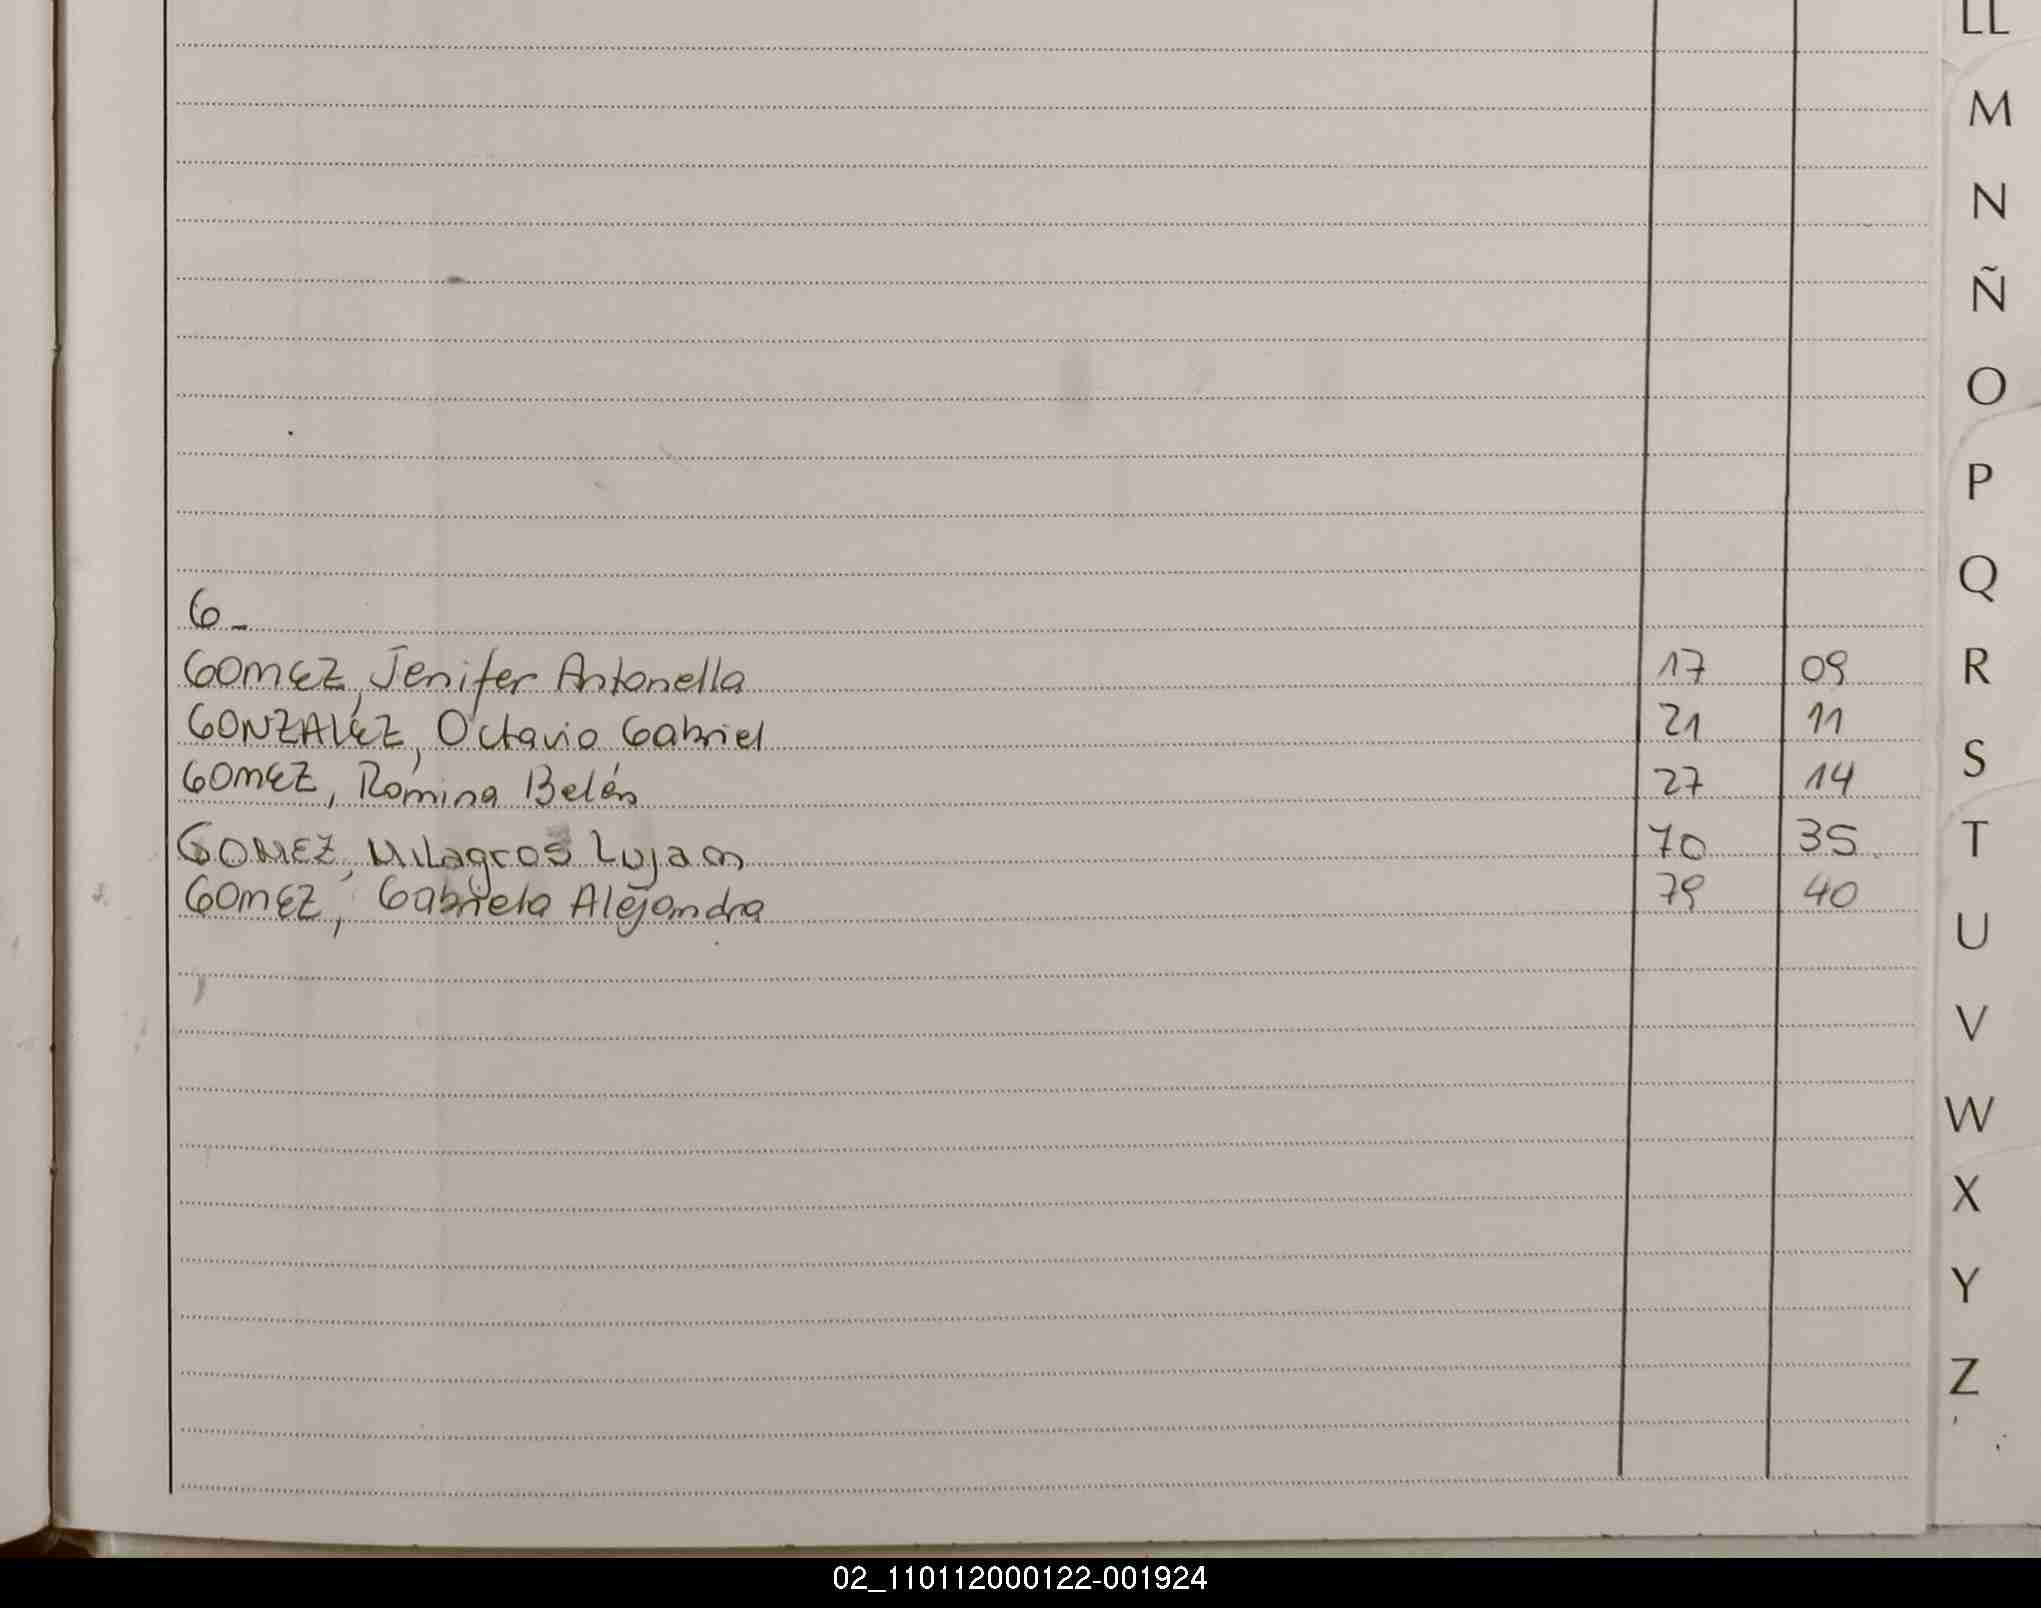 LL
M
N
Ñ
O
P
Q
G-
GOMEZ, Jenifer Antonella 17 09 R
GONZALEZ, Octavio Gabriel 21 11
GOMEZ, Romina Belén 27 14 S
GOMEZ, Milagros Lujan 70 35 T
GOMEZ, Gabriela Alejandra 79 40
U
V
W
X
Y
Z
02_110112000122-001924